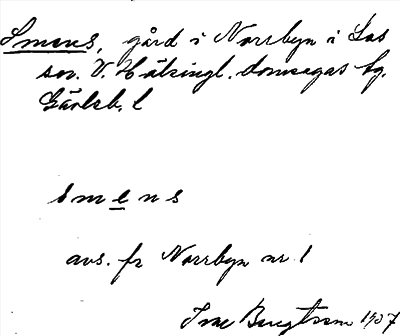 Smens, gård i Norrbyn i Los
sn. V. Hälsingl. domsagas tg.
Gävleb. l
s m e n s
avs. fr Norrbyn nr 1
Ivar Bengtsson 1907